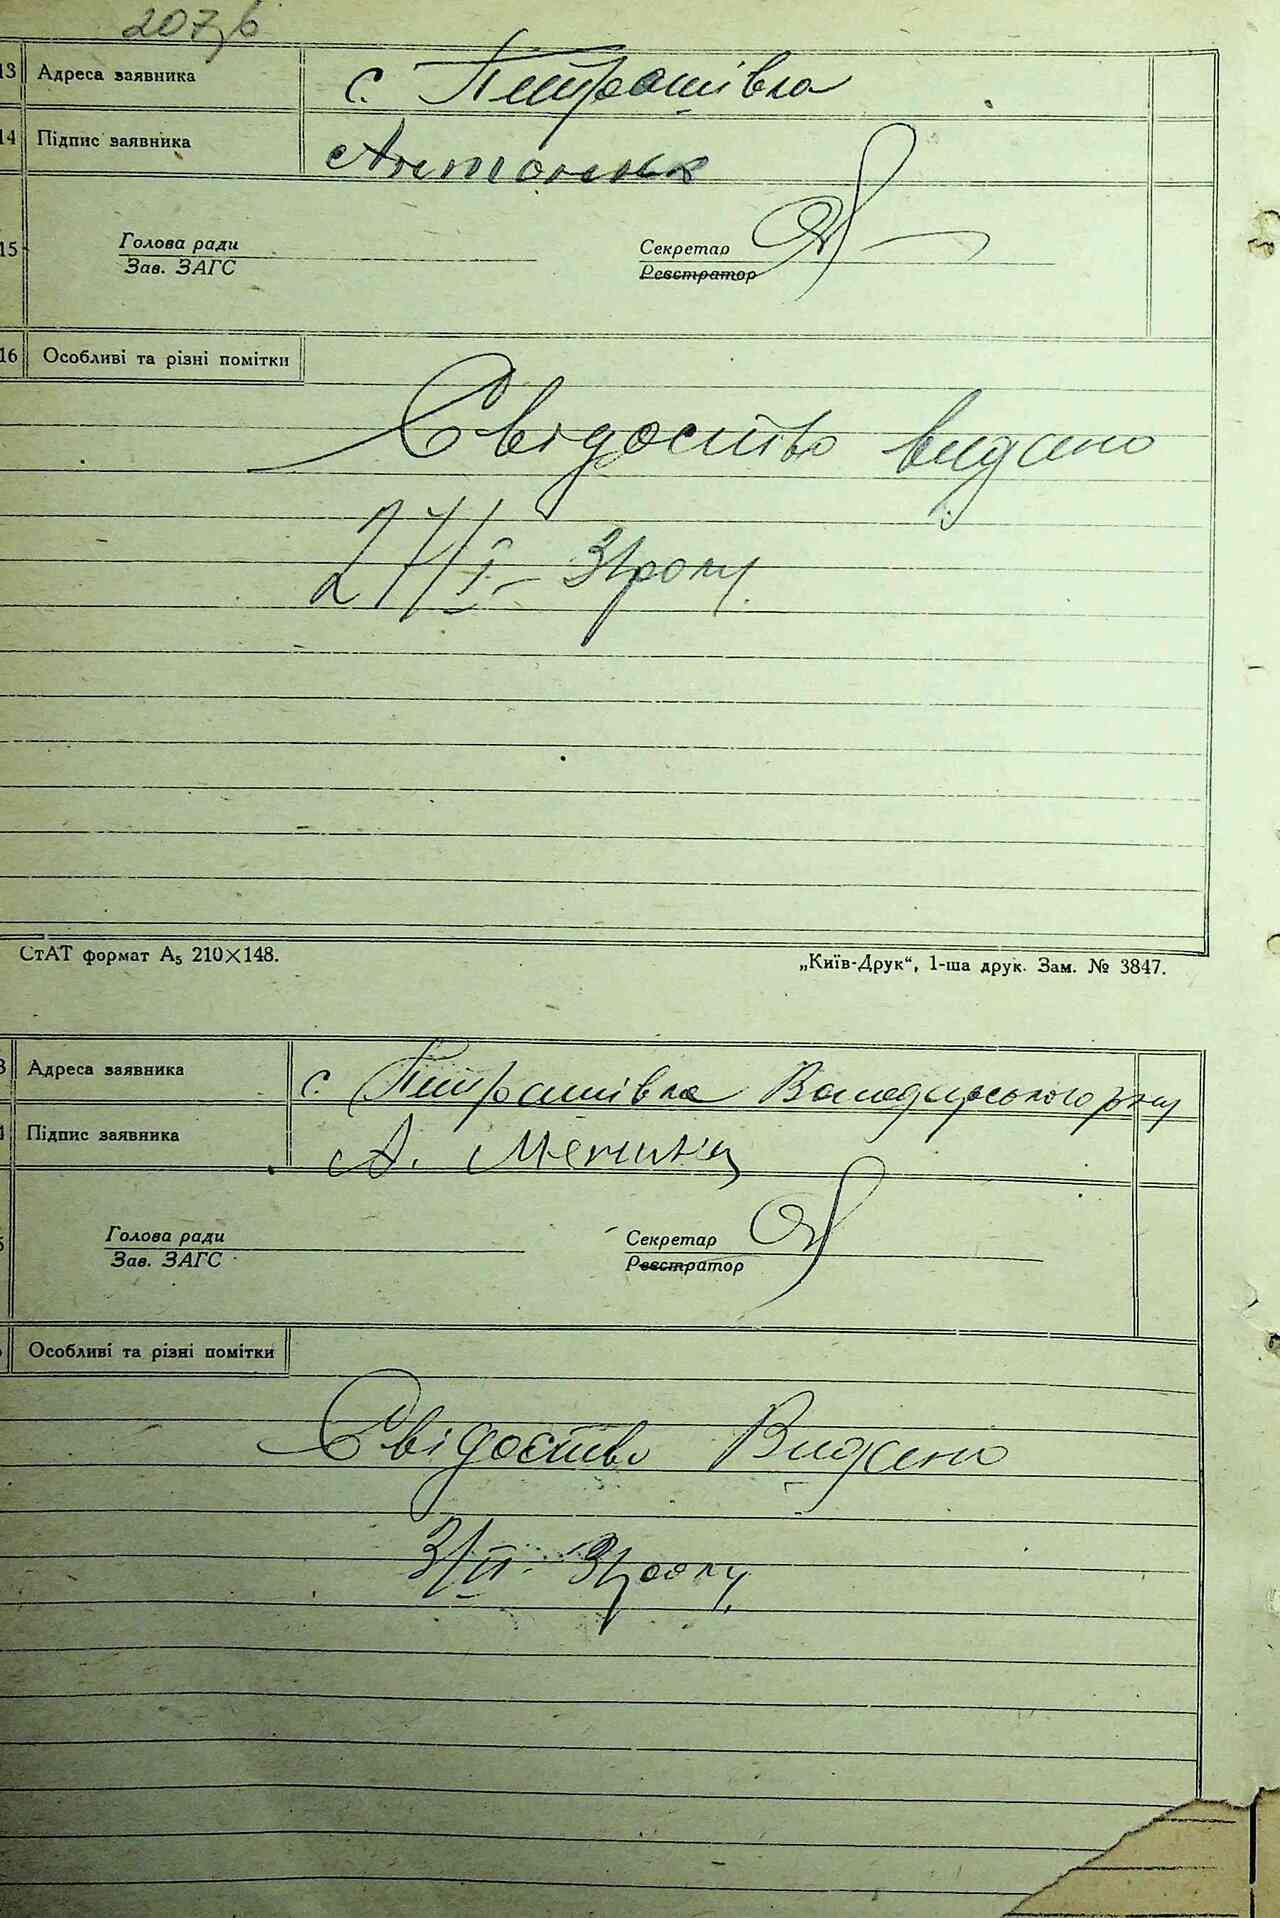 207,б
13 Адреса заявника с. Петрашівка
14 Підпис заявника Антонюк
15 Голова ради Секретар
Зав. ЗАГС Реєстратор
16 Особливі та різні помітки
Свідоство видано
27/I - 31 року.
СтАТ формат А₅ 210×148.
„Київ-Друк“, 1-ша друк. Зам. № 3847.
3 Адреса заявника с. Петрашівка Володарського р-ну
Підпис заявника А.
Голова ради Секретар
Зав. ЗАГС Реєстратор
Особливі та різні помітки
Свідоство Видано
3/II - 31 року,